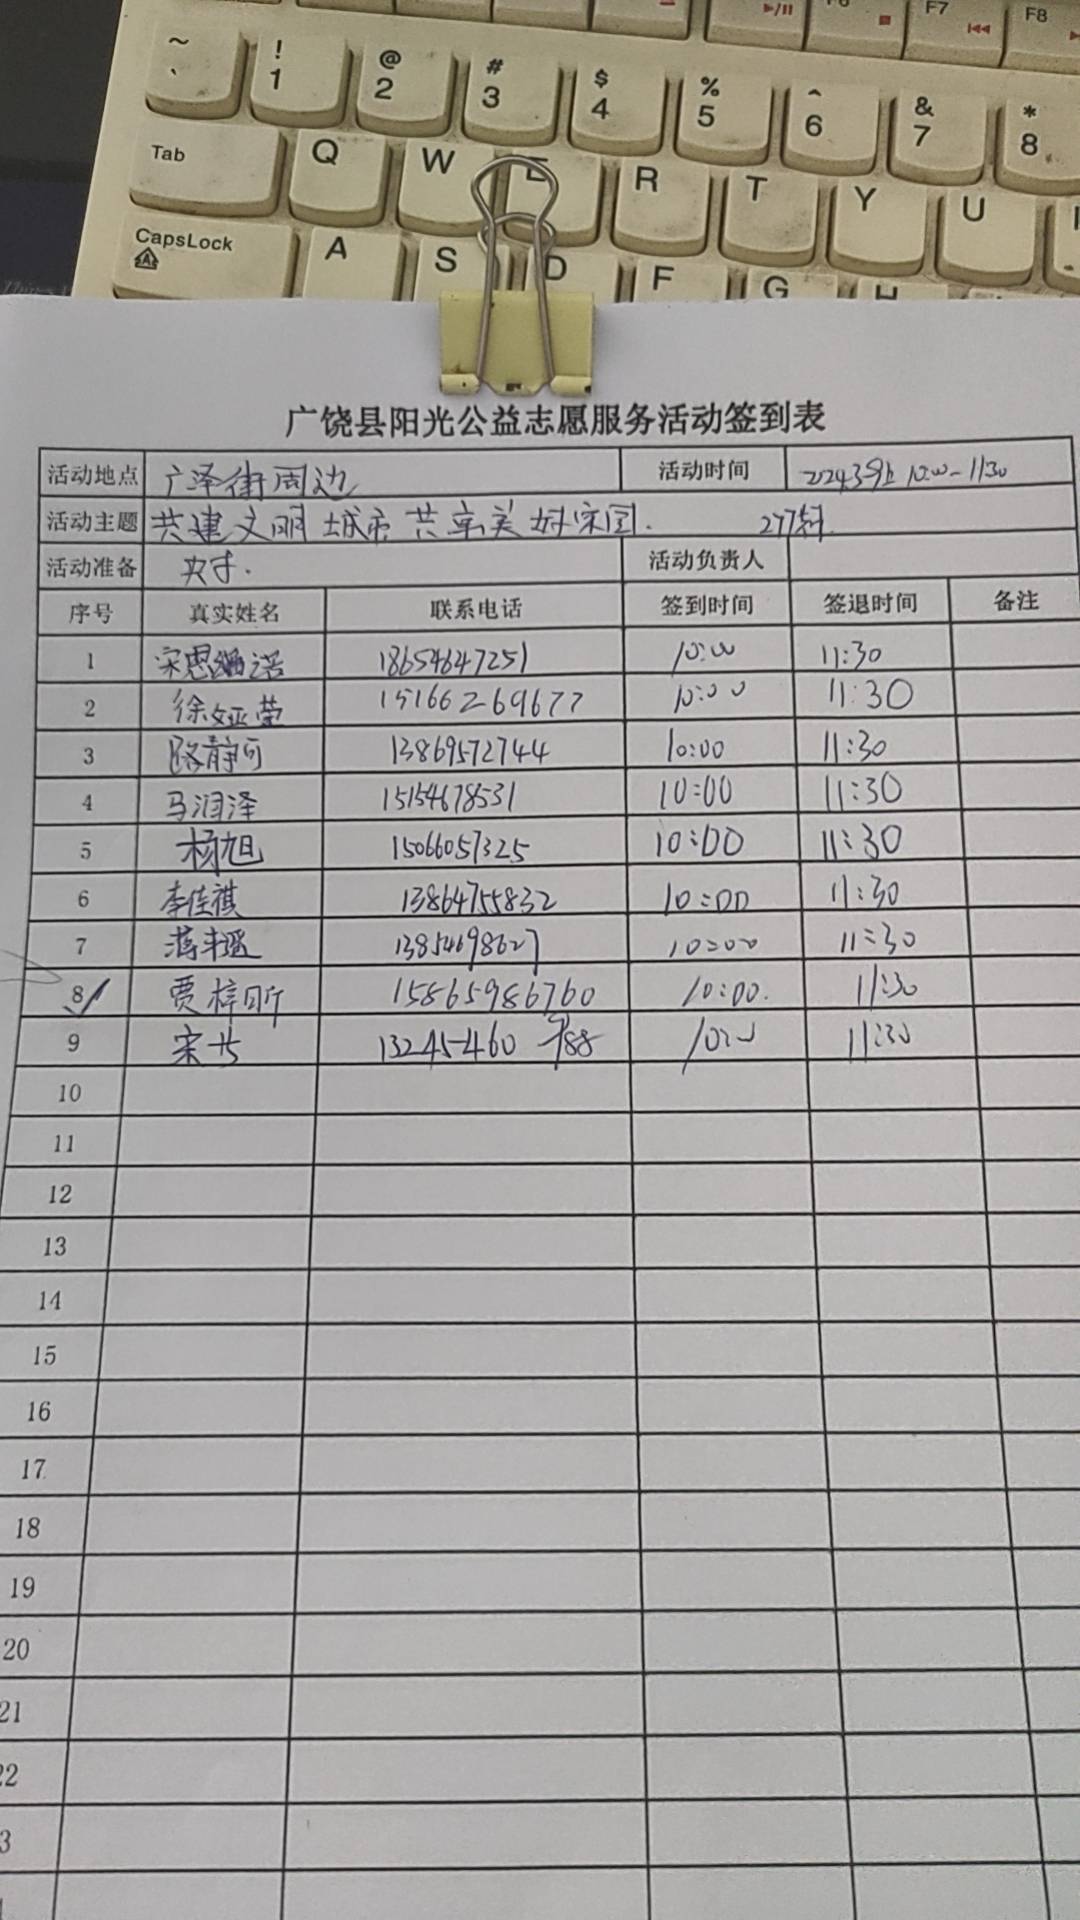 F7
F8
~ ! @ # $ % ^ & *
` 1 2 3 4 5 6 7 8
Tab Q W E R T Y U
CapsLock A S D F G H
广饶县阳光公益志愿服务活动签到表
活动地点 广泽街周边 活动时间 10:00-11:30
活动主题 共建文明城市 共享美好家园.
活动准备 活动负责人
序号 真实姓名 联系电话 签到时间 签退时间 备注
1 18654647251 10:00 11:30
2 徐娅萱 15166269677 10:00 11:30
3 路静可 13869572744 10:00 11:30
4 马润泽 15154678531 10:00 11:30
5 杨旭 15066057325 10:00 11:30
6 李佳祺 13864755832 10:00 11:30
7 13854698627 10:00 11:30
8 贾梓昕 15865986760 10:00. 11:30
9 10:00 11:30
10
11
12
13
14
15
16
17
18
19
20
21
22
3